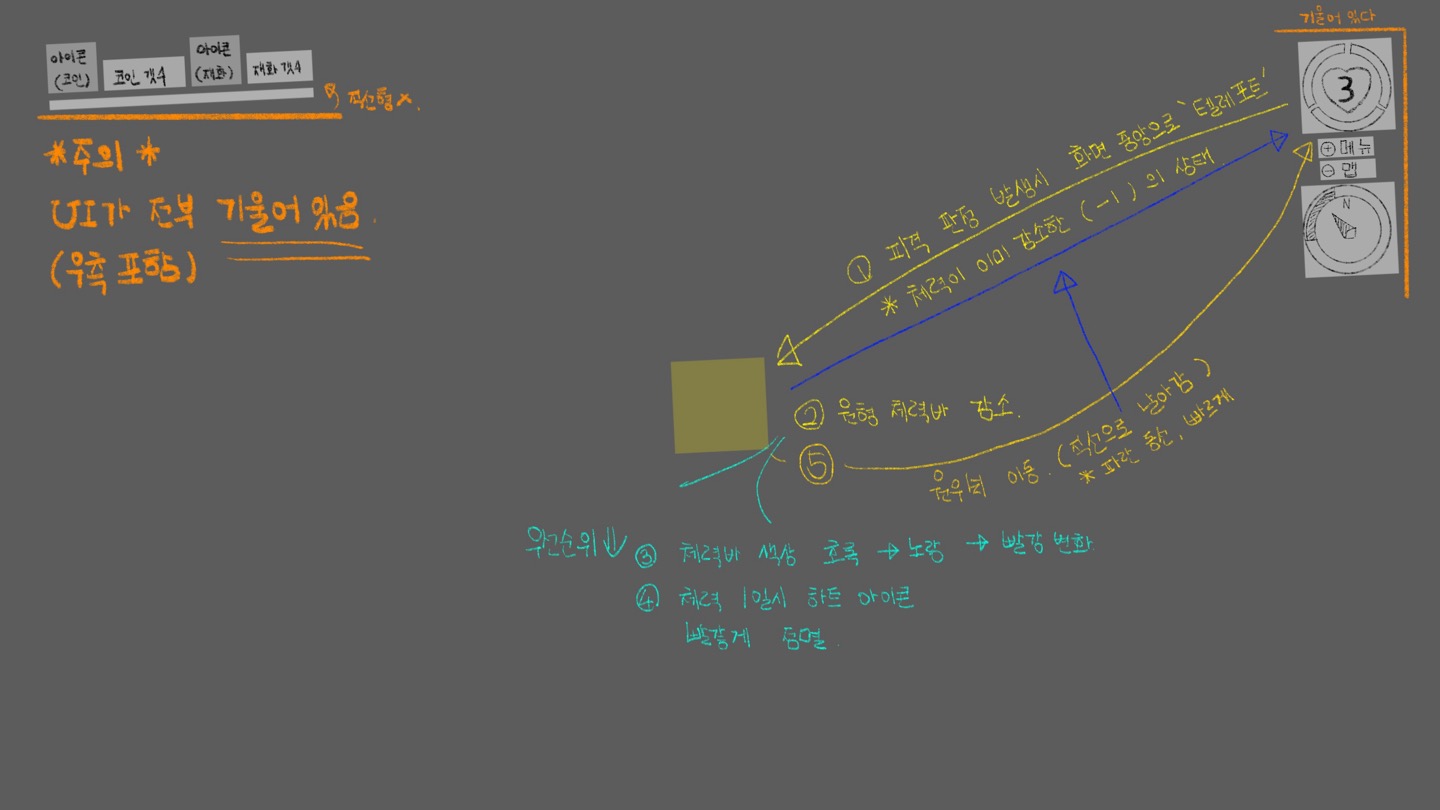 아이콘
(코인)
코인 갯수
아이콘
(재화)
재화 갯수
직선형 x.
*주의*
UI가 전부 기울어 있음.
(우측 포함)
기울어 있다
3
⊕ 메뉴
⊖ 맵
N
① 피격 판정 발생시 화면 중앙으로 '텔레포트'
* 체력이 이미 감소한 (-1)의 상태.
② 원형 체력바 감소.
⑤ 원위치 이동. (직선으로 날아감)
* 파란 동선, 빠르게
우선순위↓
③ 체력바 색상 초록 → 노랑 → 빨강 변화.
④ 체력 1일시 하트 아이콘
빨갛게 점멸.